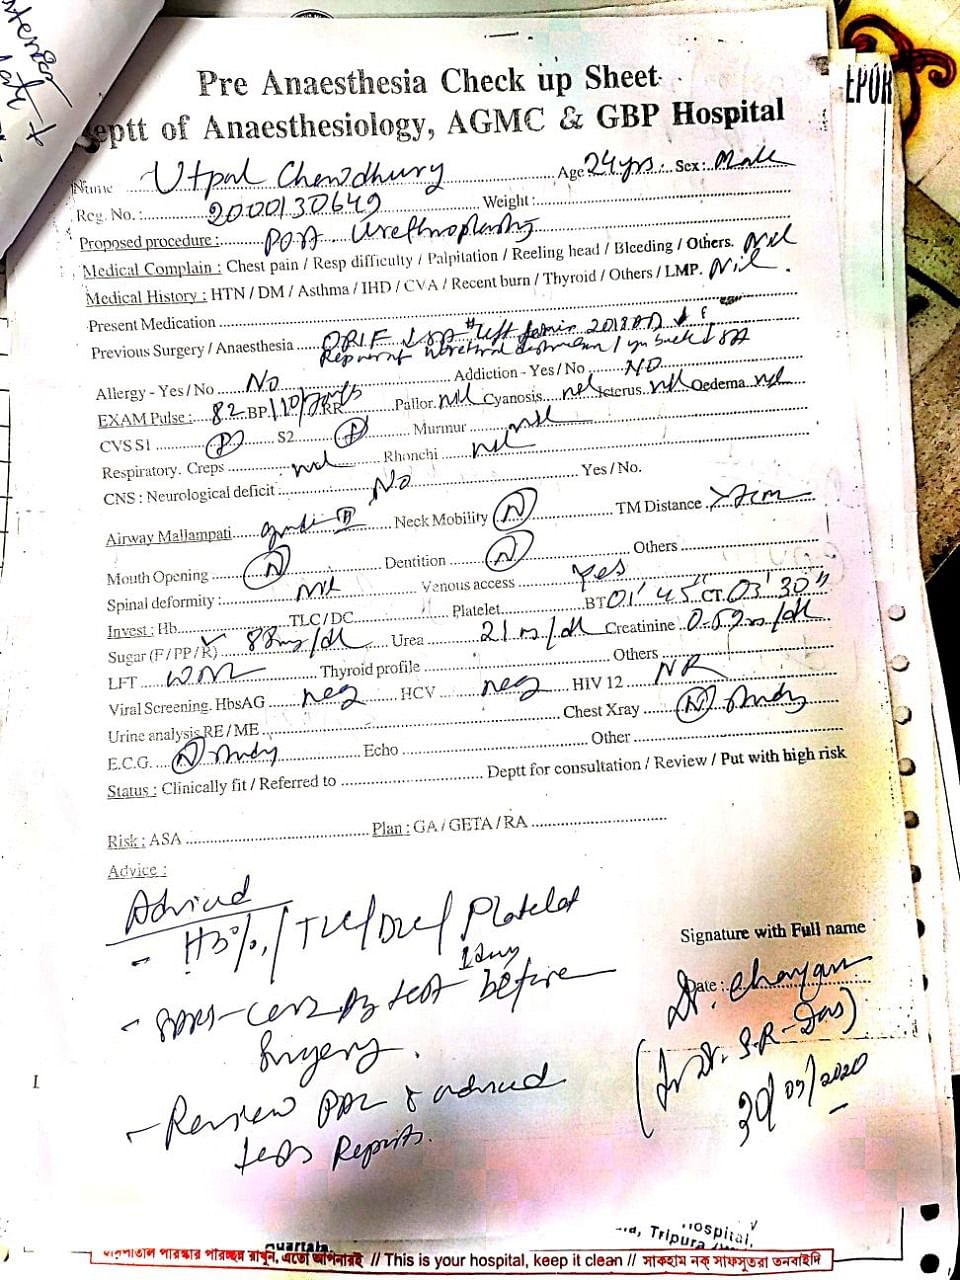 Pre Anaesthesia Check up Sheet
eptt of Anaesthesiology, AGMC & GBP Hospital
EPOR
Name Utpal Chowdhury Age 24 yrs. Sex: Male
Reg. No.: 2000130649 Weight:
Proposed procedure: Post Urethroplasty
Medical Complain : Chest pain / Resp difficulty / Palpitation / Reeling head / Bleeding / Others. Nil
Medical History : HTN / DM / Asthma / IHD / CVA / Recent burn / Thyroid / Others / LMP. Nil.
Present Medication
Previous Surgery / Anaesthesia ORIF SA # left 2018
Repair of urethral SA
Allergy - Yes / No No Addiction - Yes / No NO
EXAM Pulse: 82 BP 110/ RR Pallor nil Cyanosis nil Icterus nil Oedema nil
CVS S1 P S2 P Murmur nil
Respiratory. Creps nil Rhonchi nil
CNS : Neurological deficit : No Yes / No.
Airway Mallampati grade II Neck Mobility N TM Distance >7cm
Mouth Opening N Dentition N Others
Spinal deformity : Nil Venous access Yes
Invest : Hb TLC / DC Platelet BT 01' 45" CT 03' 30"
Sugar (F / PP / R) ✓ 88 mg/dl Urea 21 mg/dl Creatinine 0.69 mg/dl
LFT WNL Thyroid profile Others
Viral Screening. HbsAG neg HCV neg HIV 12 NR
Urine analysis RE / ME Chest Xray N Study
E.C.G. N Study Echo Other
Status : Clinically fit / Referred to Deptt for consultation / Review / Put with high risk
Risk : ASA Plan : GA / GETA / RA
Advice :
Advised
- Hb%/ TLC/DLC/ Platelet
- SARS-COV2 Ag test 1 day before
Surgery.
- Review PAC & advised
tests Reports.
Signature with Full name
Date :
Dr.
(for Dr. S.R. Das)
30/09/2020
ospital,
Tripura
হাসপাতাল পরিষ্কার পরিচ্ছন্ন রাখুন, এতো আপনারই // This is your hospital, keep it clean // সাকহাম নক্ সাফসুতরা তনবাইদি